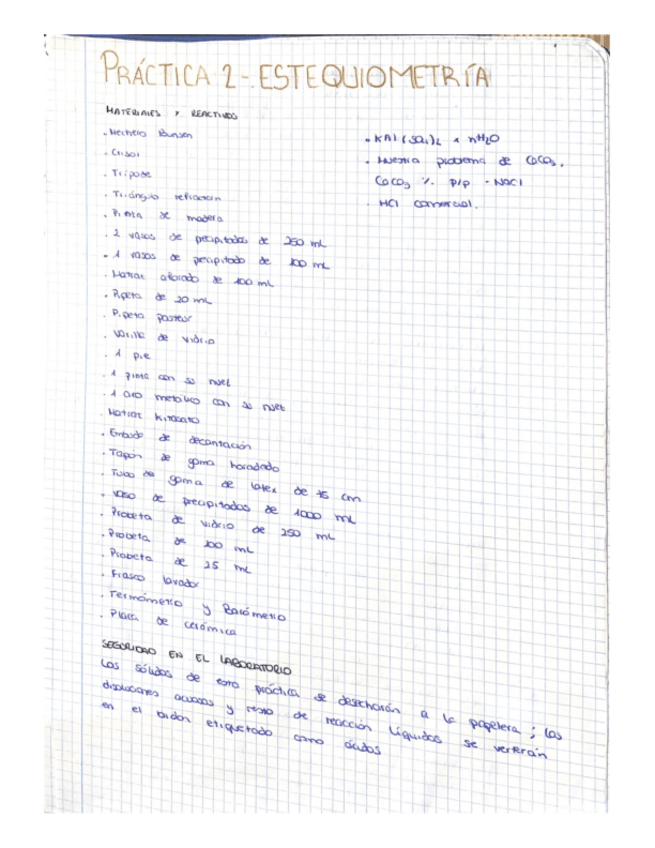 PRÁCTICA 2-. ESTEQUIOMETRÍA
MATERIALES Y REACTIVOS
. Mechero Bunsen
. Crisol
. Trípode
. Triángulo refractario
. Pinza de madera
. 2 vasos de precipitados de 250 mL
. 1 vasos de precipitado de 100 mL
. Matraz aforado de 100 mL
. Pipeta de 20 mL
. Pipeta pasteur
. Varilla de vidrio
. 1 pie
. 1 pinza con su nuez
. 1 aro metálico con su nuez
. Matraz kitasato
. Embudo de decantación
. Tapón de goma horadado
. Tubo de goma de latex de 75 cm
. Vaso de precipitados de 1000 mL
. Probeta de vidrio de 250 mL
. Probeta de 100 mL
. Probeta de 25 mL
. Frasco lavador
. Termómetro y Barómetro
. Placa de cerámica
. KAl(SO4)2 x nH2O
. Muestra problema de CaCO3.
CaCO3 % p/p - NaCl
. HCl comercial.
SEGURIDAD EN EL LABORATORIO
Los sólidos de esta práctica se desecharán a la papelera ; las
disoluciones acuosas y resto de reacción líquidos se verterán
en el bidón etiquetado como ácidos